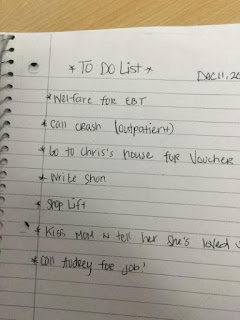 * To Do List *
Dec 11, 20
* Welfare for EBT
* Call crash (outpatient)
* Go to Chris's house for Voucher
* Write Shon
* Shop Lift
* Kiss Mom N tell her she's loved
* Call Audrey for job!